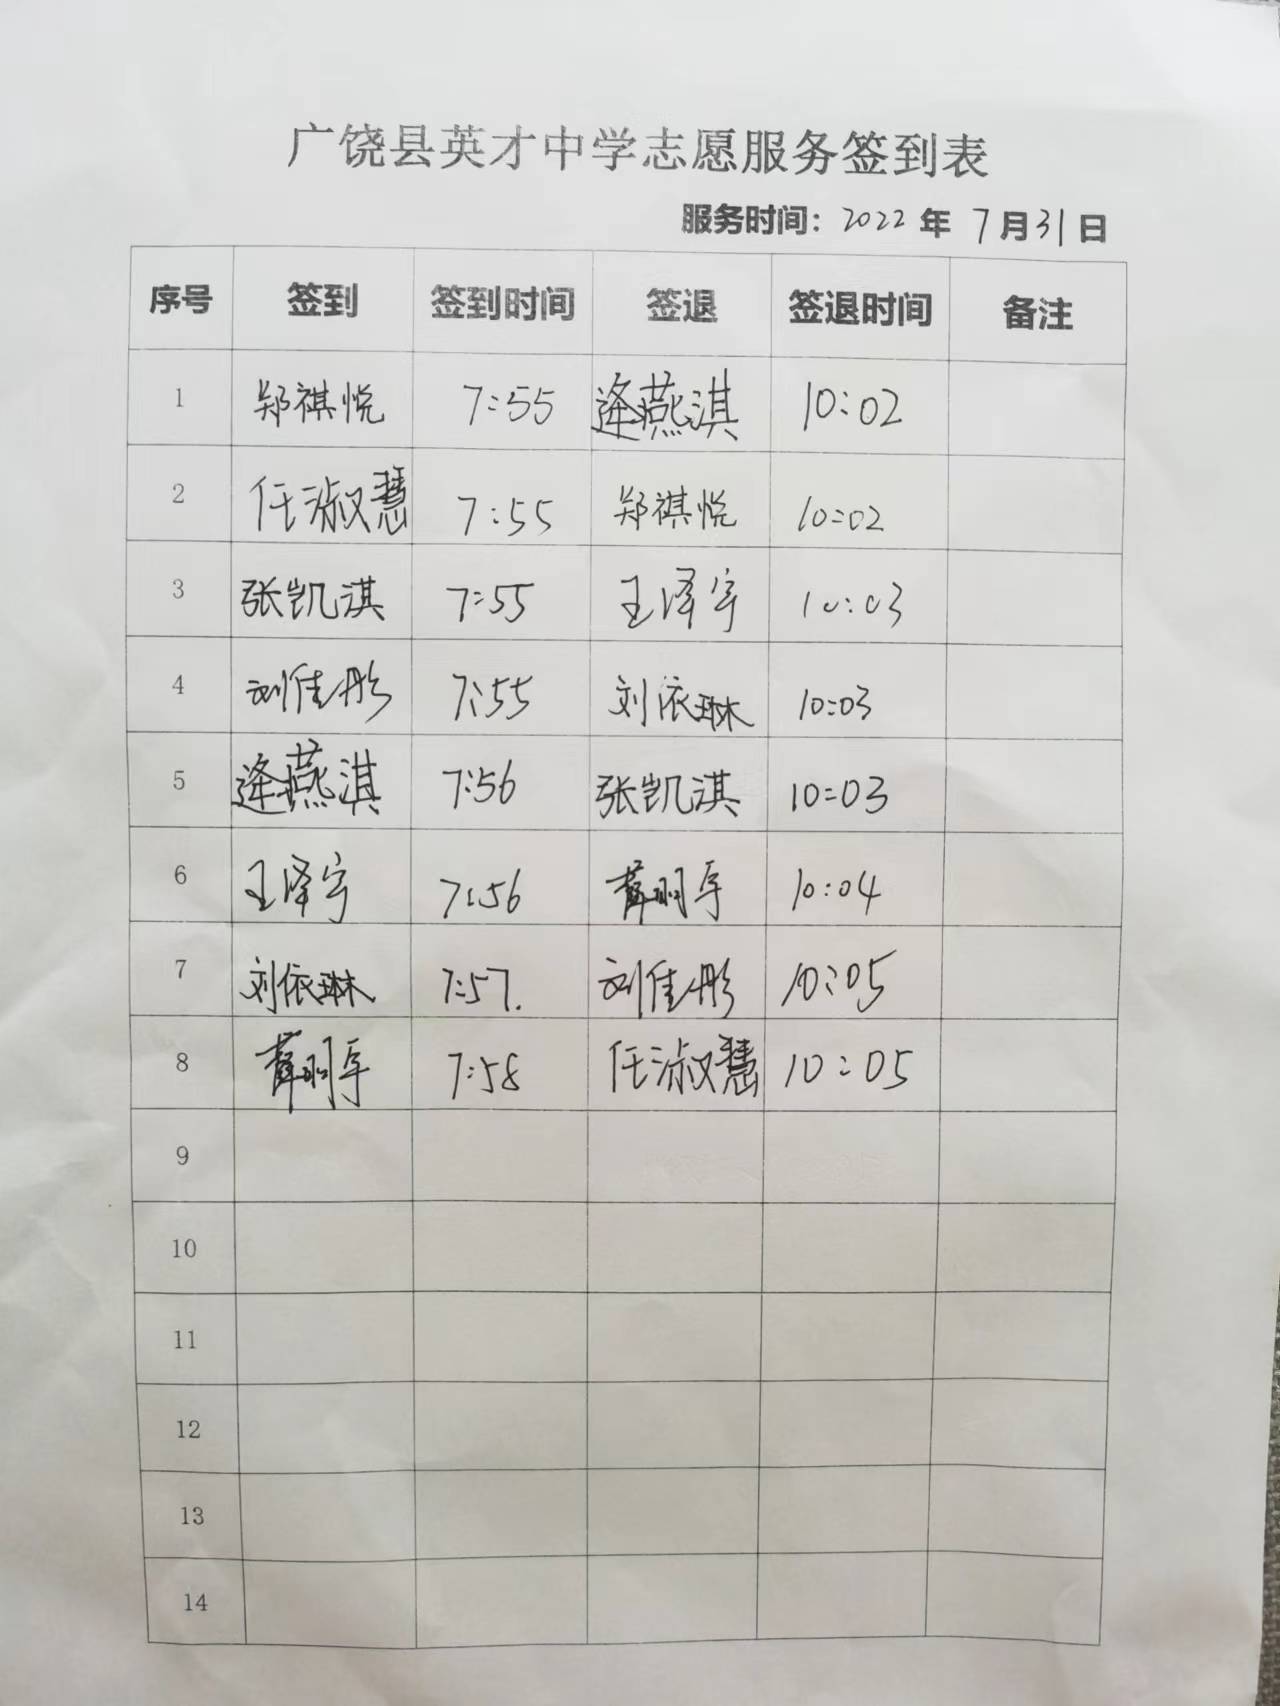 广饶县英才中学志愿服务签到表
服务时间：2022年 7月31日
序号 签到 签到时间 签退 签退时间 备注
1 郑祺悦 7:55 逄燕淇 10:02
2 任淑慧 7:55 郑祺悦 10:02
3 张凯淇 7:55 王泽宇 10:03
4 刘佳彤 7:55 刘依琳 10:03
5 逄燕淇 7:56 张凯淇 10:03
6 王泽宇 7:56 薛明宇 10:04
7 刘依琳 7:57. 刘佳彤 10:05
8 薛明宇 7:58 任淑慧 10:05
9
10
11
12
13
14